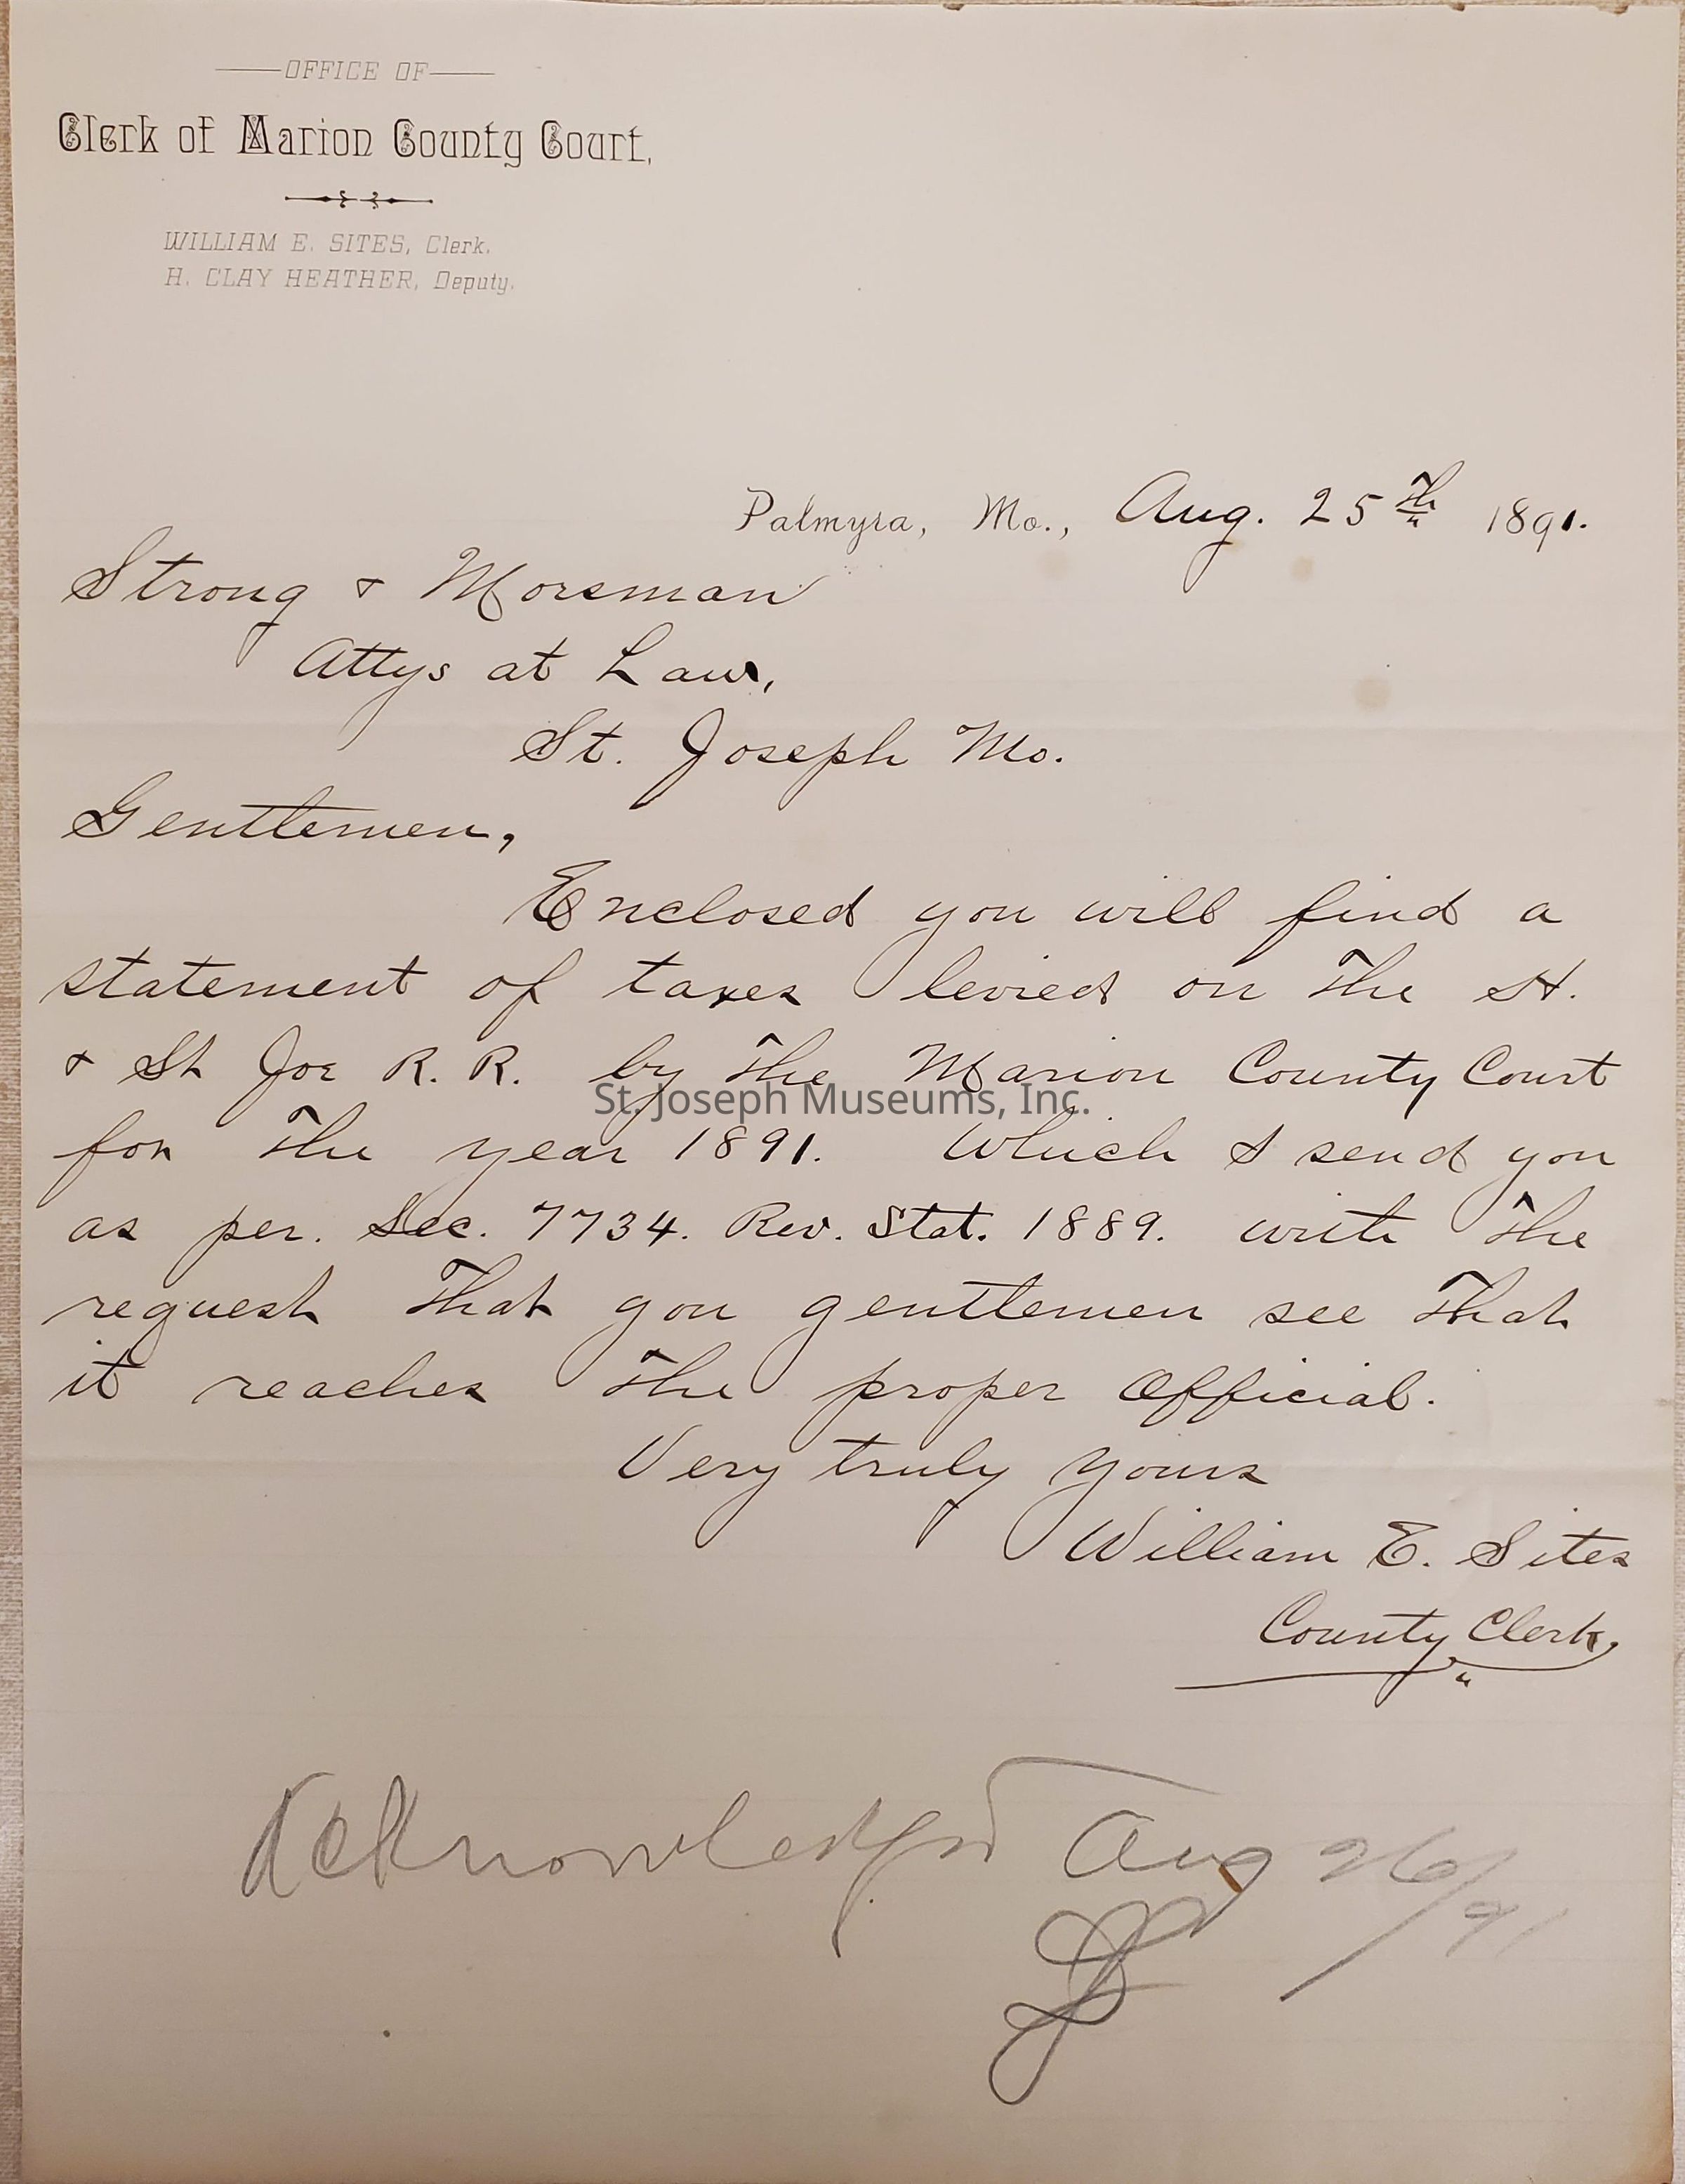 OFFICE OF
Clerk of Marion County Court,
WILLIAM E. SITES, Clerk.
H. CLAY HEATHER, Deputy.
Palmyra, Mo., Aug. 25th 1891.
Strong & Morsman
Attys at Law,
St. Joseph Mo.
Gentlemen,
Enclosed you will find a
statement of taxes levied on the H.
& St Joe R. R. by the Marion County Court
for the year 1891. Which I send you
as per. Sec. 7734. Rev. Stat. 1889. with the
request that you gentlemen see that
it reaches the proper official.
Very truly yours
William E. Sites
County Clerk,
Acknowledged Aug 26/91
St. Joseph Museums, Inc.